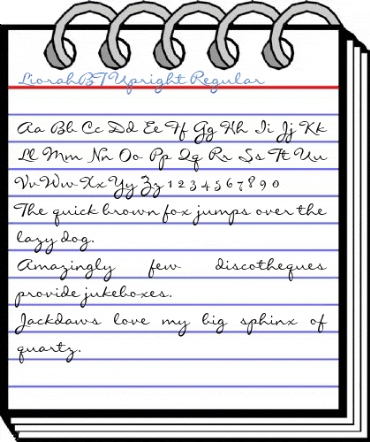 LiorahBT Upright Regular
Aa Bb Cc Dd Ee Ff Gg Hh Ii Jj Kk
Ll Mm Nn Oo Pp Qq Rr Ss Tt Uu
Vv Ww Xx Yy Zz 1 2 3 4 5 6 7 8 9 0
The quick brown fox jumps over the
lazy dog.
Amazingly few discotheques
provide jukeboxes.
Jackdaws love my big sphinx of
quartz.